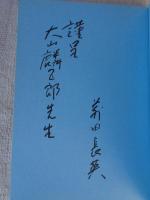 謹呈
大山麟五郎先生
前田長英